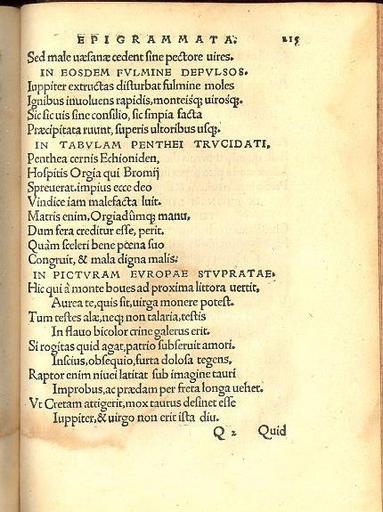 EPIGRAMMATA. 215
Sed male uæsanæ cedent sine pectore uires.
IN EOSDEM FVLMINE DEPVLSOS.
Iuppiter extructas disturbat fulmine moles
Ignibus inuoluens rapidis, monteisq; uirosq;.
Sic sic uis sine consilio, sic impia facta
Præcipitata ruunt, superis ultoribus usq;.
IN TABVLAM PENTHEI TRVCIDATI.
Penthea cernis Echioniden,
Hospitis Orgia qui Bromij
Spreuerat. impius ecce deo
Vindice iam malefacta luit.
Matris enim, Orgiadûmq; manu,
Dum fera creditur esse, perit.
Quàm sceleri bene pœna suo
Congruit, & mala digna malis.
IN PICTVRAM EVROPAE STVPRATAE.
Hic qui à monte boues ad proxima littora uertit,
Aurea te, quis sit, uirga monere potest.
Tum testes alæ, neq; non talaria, testis
In flauo bicolor crine galerus erit.
Si rogitas quid agat, patrio subseruit amori.
Inscius, obsequio, furta dolosa tegens,
Raptor enim niuei latitat sub imagine tauri
Improbus, ac prædam per freta longa uehet.
Vt Cretam attigerit, mox taurus desinet esse
Iuppiter, & uirgo non erit ista diu.
Q 2 Quid